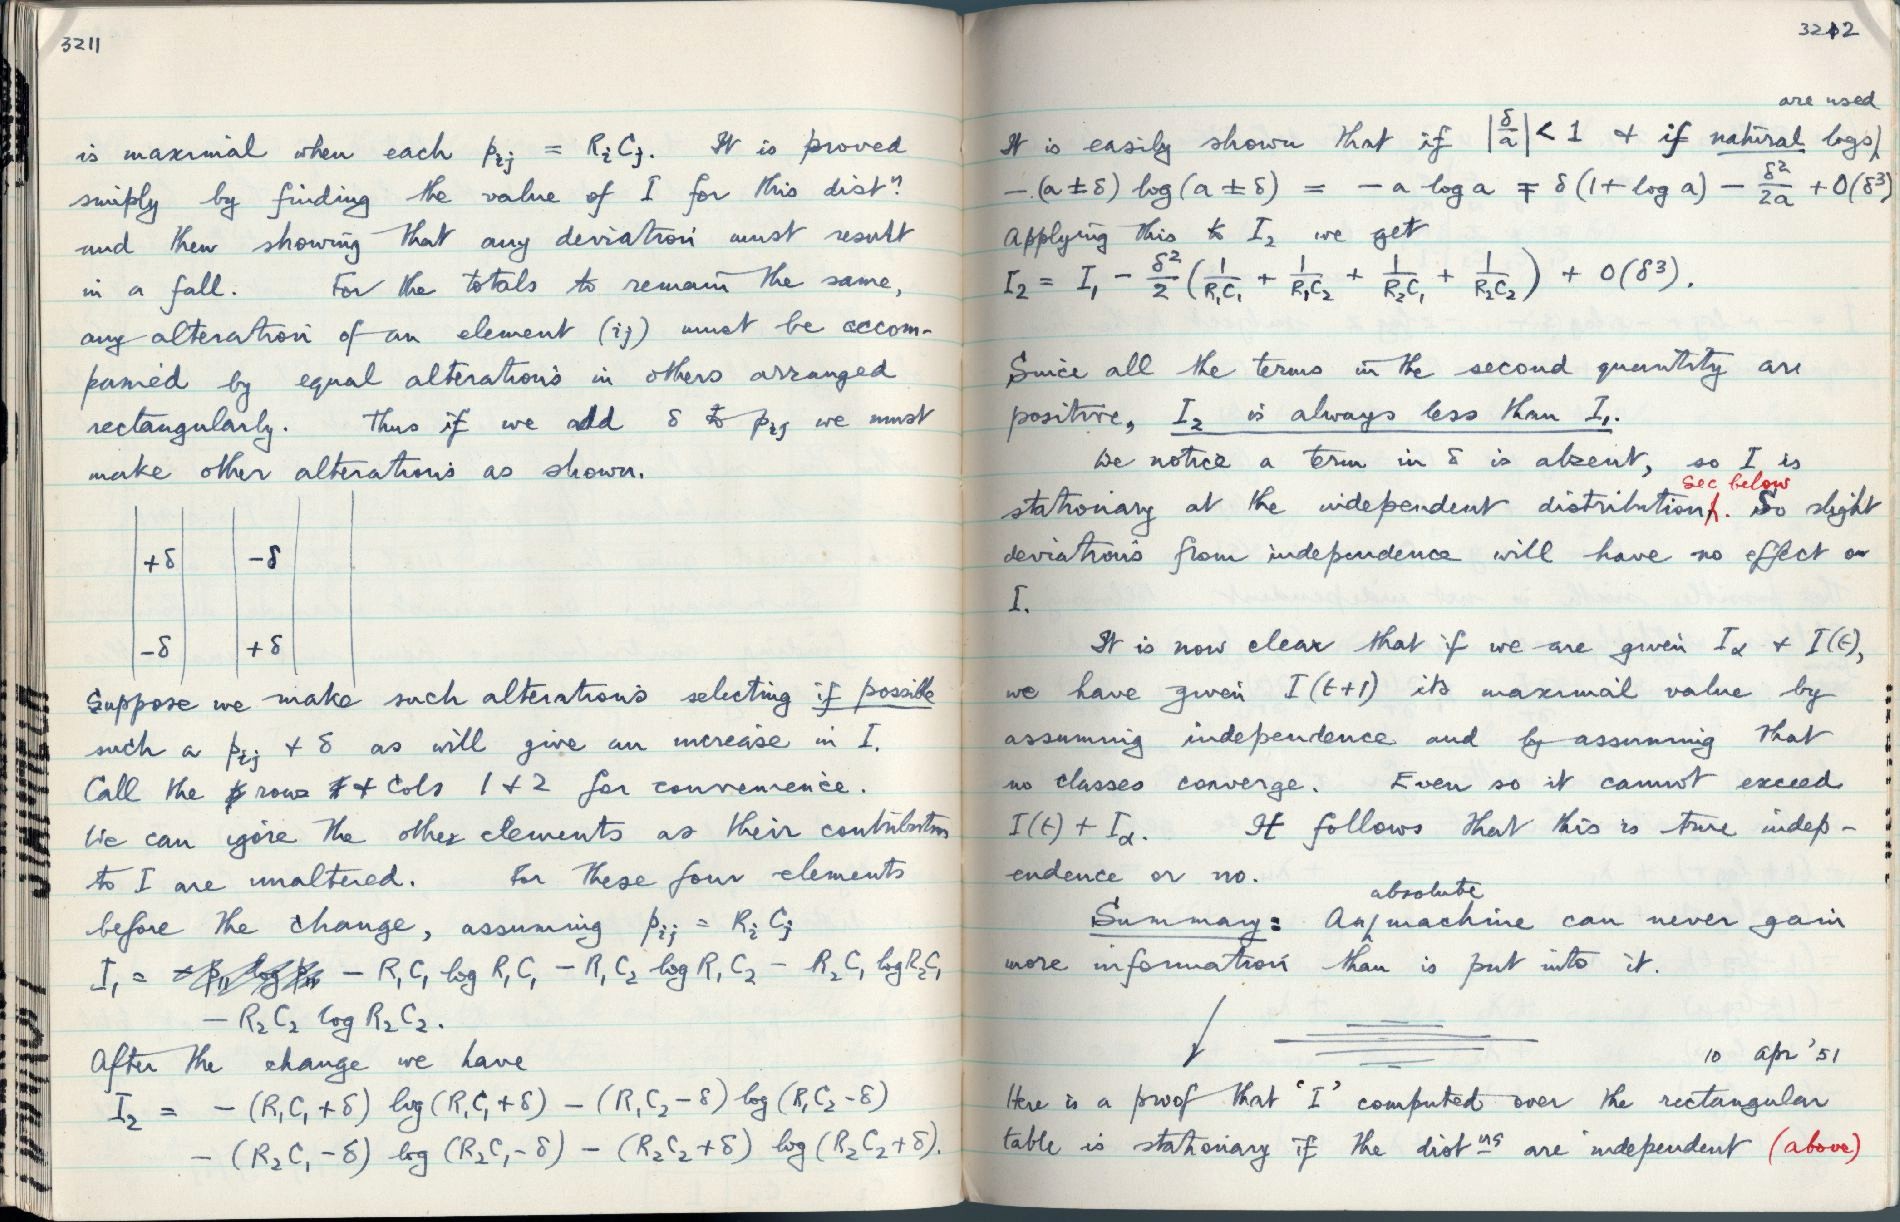 3211
is maximal when each p_ij = R_i C_j. It is proved
simply by finding the value of I for this dist^n.
and then showing that any deviation must result
in a fall. For the totals to remain the same,
any alteration of an element (ij) must be accom-
panied by equal alterations in others arranged
rectangularly. Thus if we add δ to p_ij we must
make other alterations as shown.
+δ -δ
-δ +δ
Suppose we make such alterations selecting if possible
such a p_ij + δ as will give an increase in I.
Call the rows + cols 1 + 2 for convenience.
We can ignore the other elements as their contributions
to I are unaltered. For these four elements
before the change, assuming p_ij = R_i C_j
I₁ = − R₁C₁ log R₁C₁ − R₁C₂ log R₁C₂ − R₂C₁ log R₂C₁
− R₂C₂ log R₂C₂.
After the change we have
I₂ = − (R₁C₁+δ) log (R₁C₁+δ) − (R₁C₂−δ) log (R₁C₂−δ)
− (R₂C₁−δ) log (R₂C₁−δ) − (R₂C₂+δ) log (R₂C₂+δ).
3212
are used
It is easily shown that if |δ/a| < 1 + if natural logs
− (a ± δ) log (a ± δ) = − a log a ∓ δ (1 + log a) − δ²/2a + O(δ³)
Applying this to I₂ we get
I₂ = I₁ − δ²/2 (1/R₁C₁ + 1/R₁C₂ + 1/R₂C₁ + 1/R₂C₂) + O(δ³).
Since all the terms in the second quantity are
positive, I₂ is always less than I₁.
We notice a term in δ is absent, so I is
See below
stationary at the independent distribution. So slight
deviations from independence will have no effect on
I.
It is now clear that if we are given I_α + I(t),
we have given I(t+1) its maximal value by
assuming independence and by assuming that
no classes converge. Even so it cannot exceed
I(t) + I_α. It follows that this is true indep-
endence or no.
absolute
Summary: An machine can never gain
more information than is put into it.
10 Apr '51
Here is a proof that 'I' computed over the rectangular
table is stationary if the dist^ns are independent (above)